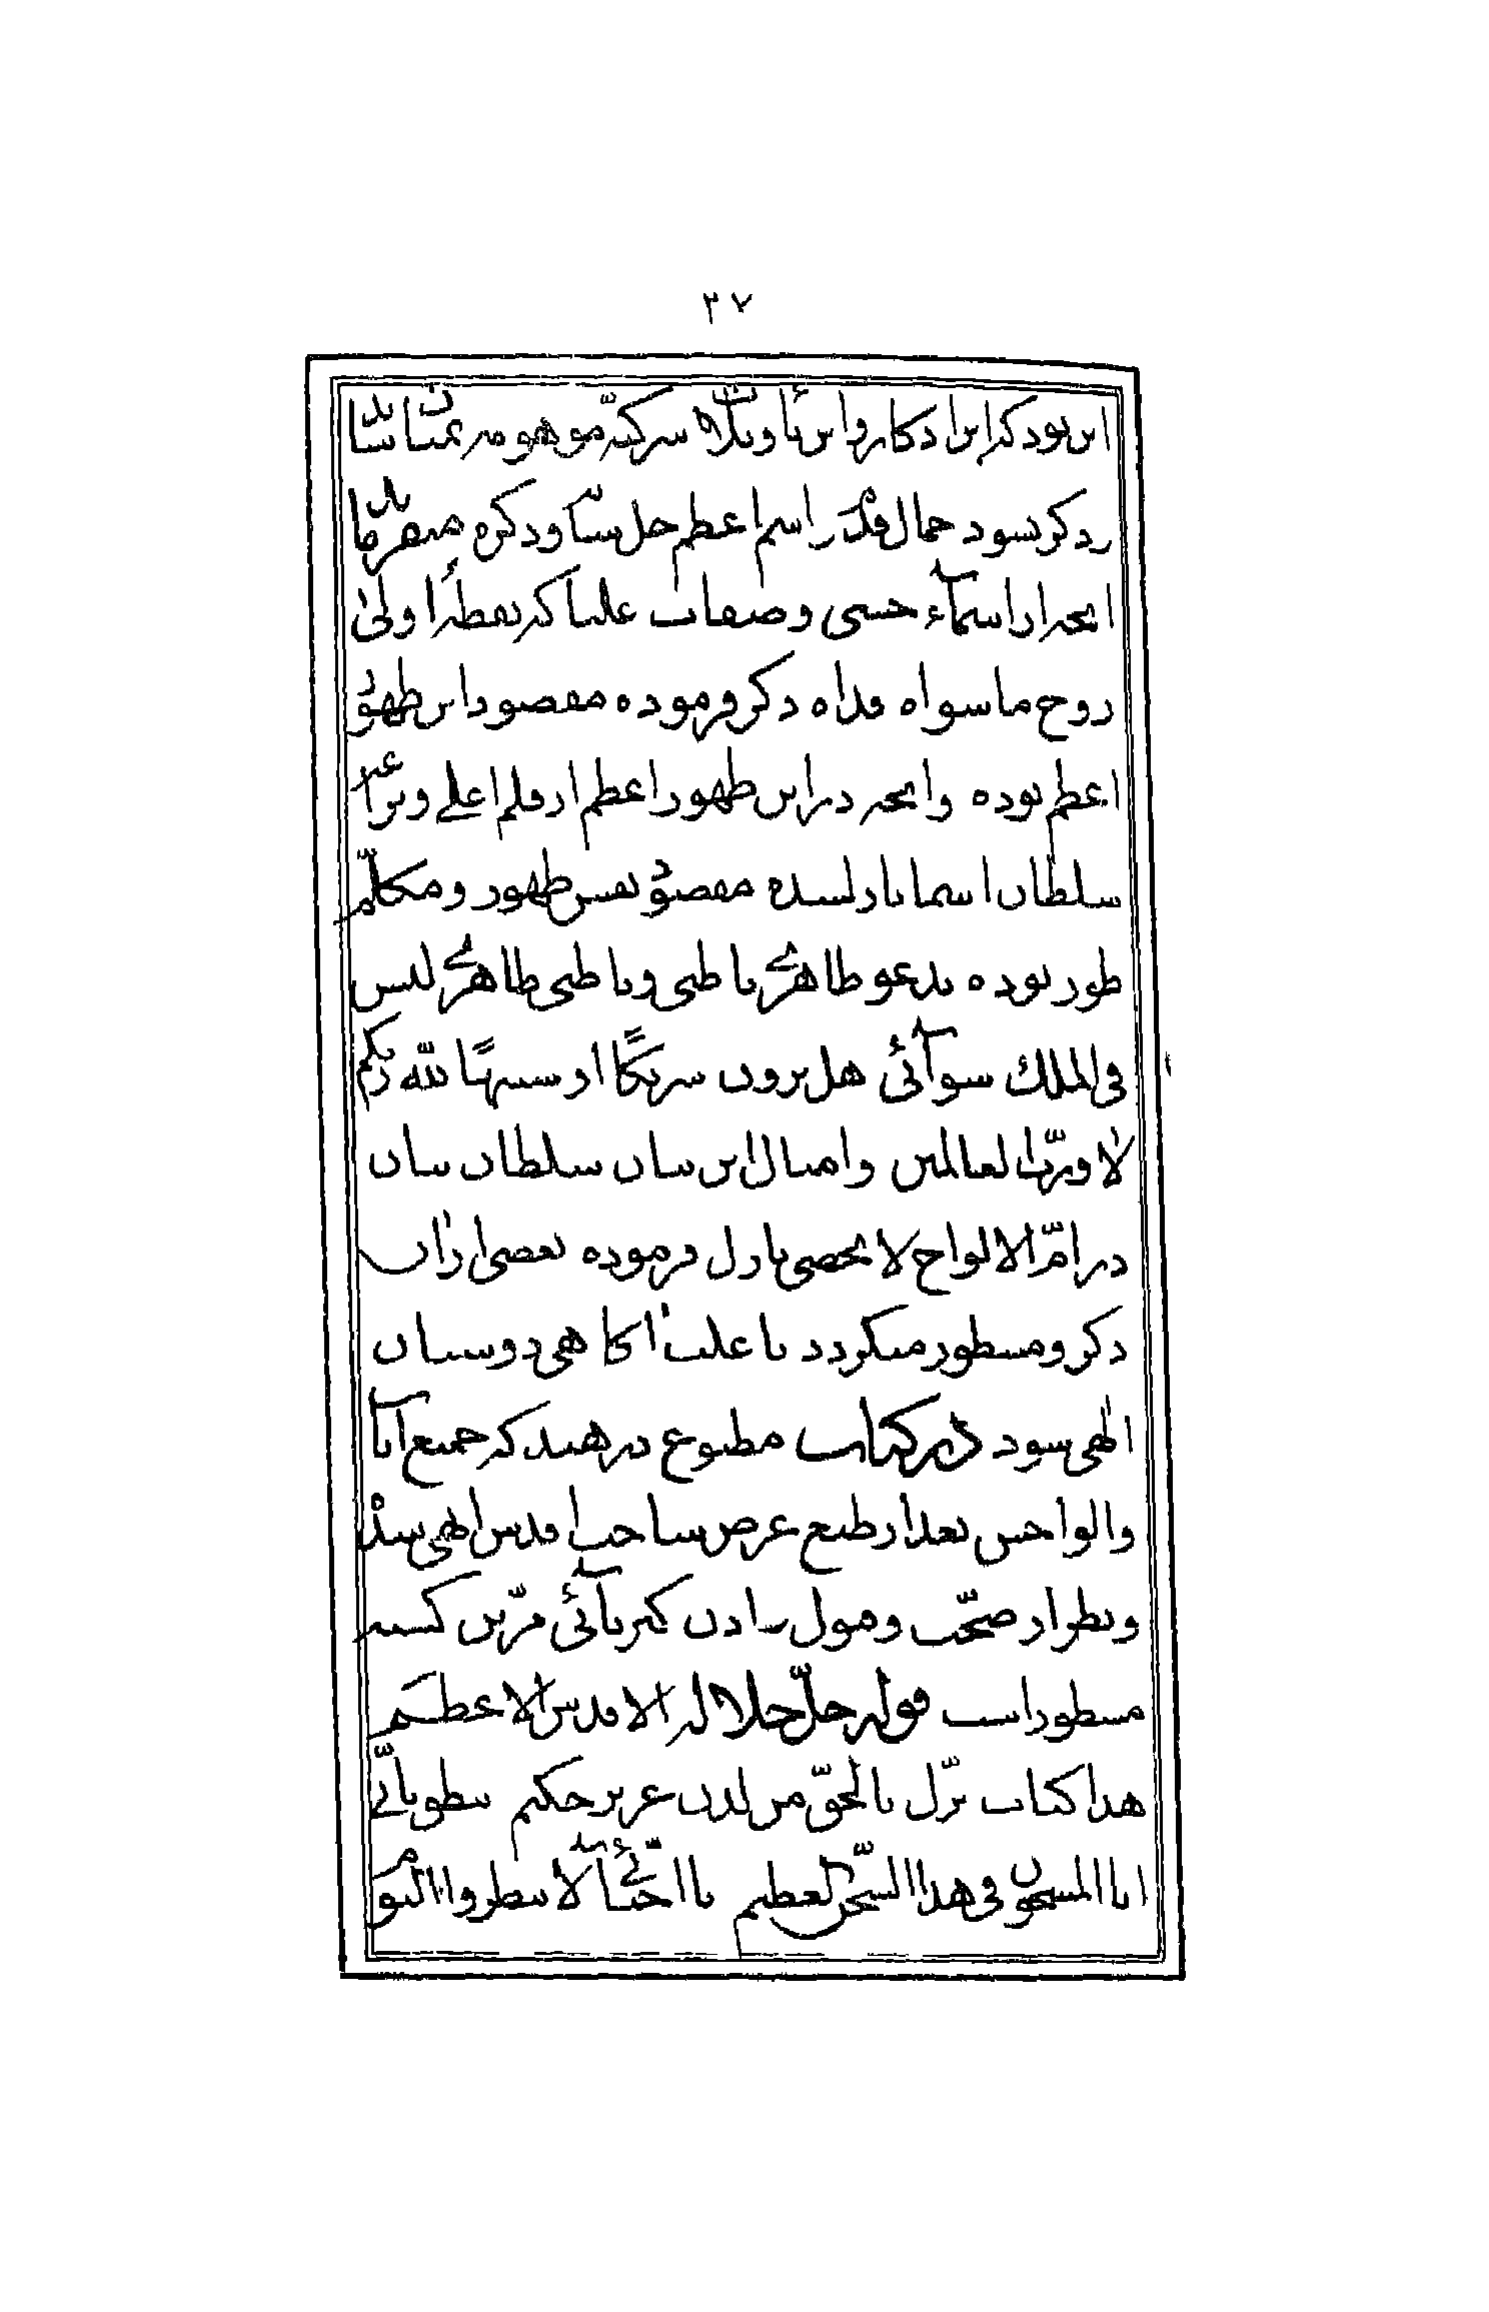 ۳۷
این بود که این اذکار و این تأویلات شرکیّه موهومه بمیان نباید
ذکر نشود جمال قدم را اسم اعظم جلّ ثنائه و ذکره میفرماید
آنچه از اسمآء حسنی و صفات علیا که نقطهٔ اولی
روح ما سواه فداه ذکر فرموده مقصود این ظهور
اعظم بوده و آنچه در این ظهور اعظم از قلم اعلی و براعهٔ
سلطان اسما نازل شده مقصود نفس ظهور و مکلّم
طور بوده یدعو ظاهری باطنی و باطنی ظاهری لیس
فی الملک سوآئی هل یرون شریکًا او شبیهًا لله ربّکم
لا وربّ العالمین و امثال این بیان سلطان بیان
در امّ الالواح لا یحصی نازل فرموده بعضی از آن
ذکر و مسطور میگردد تا علّت آگاهی دوستان
الهی شود در کتاب مطبوع در هند که جمیع آیات
و الواحش بعد از طبع عرض ساحت اقدس الهی شده
و بطراز صحّت و قبول رادن کبریآئی مزیّن گشته
مسطور است قوله جلّ جلاله الاقدس الاعظم
هذا کتاب نزّل بالحقّ من لدن عزیز حکیم ینطق بانّی
انا المسجون فی هذا السّجن العظیم یا احبّائی لا تنظروا الیوم